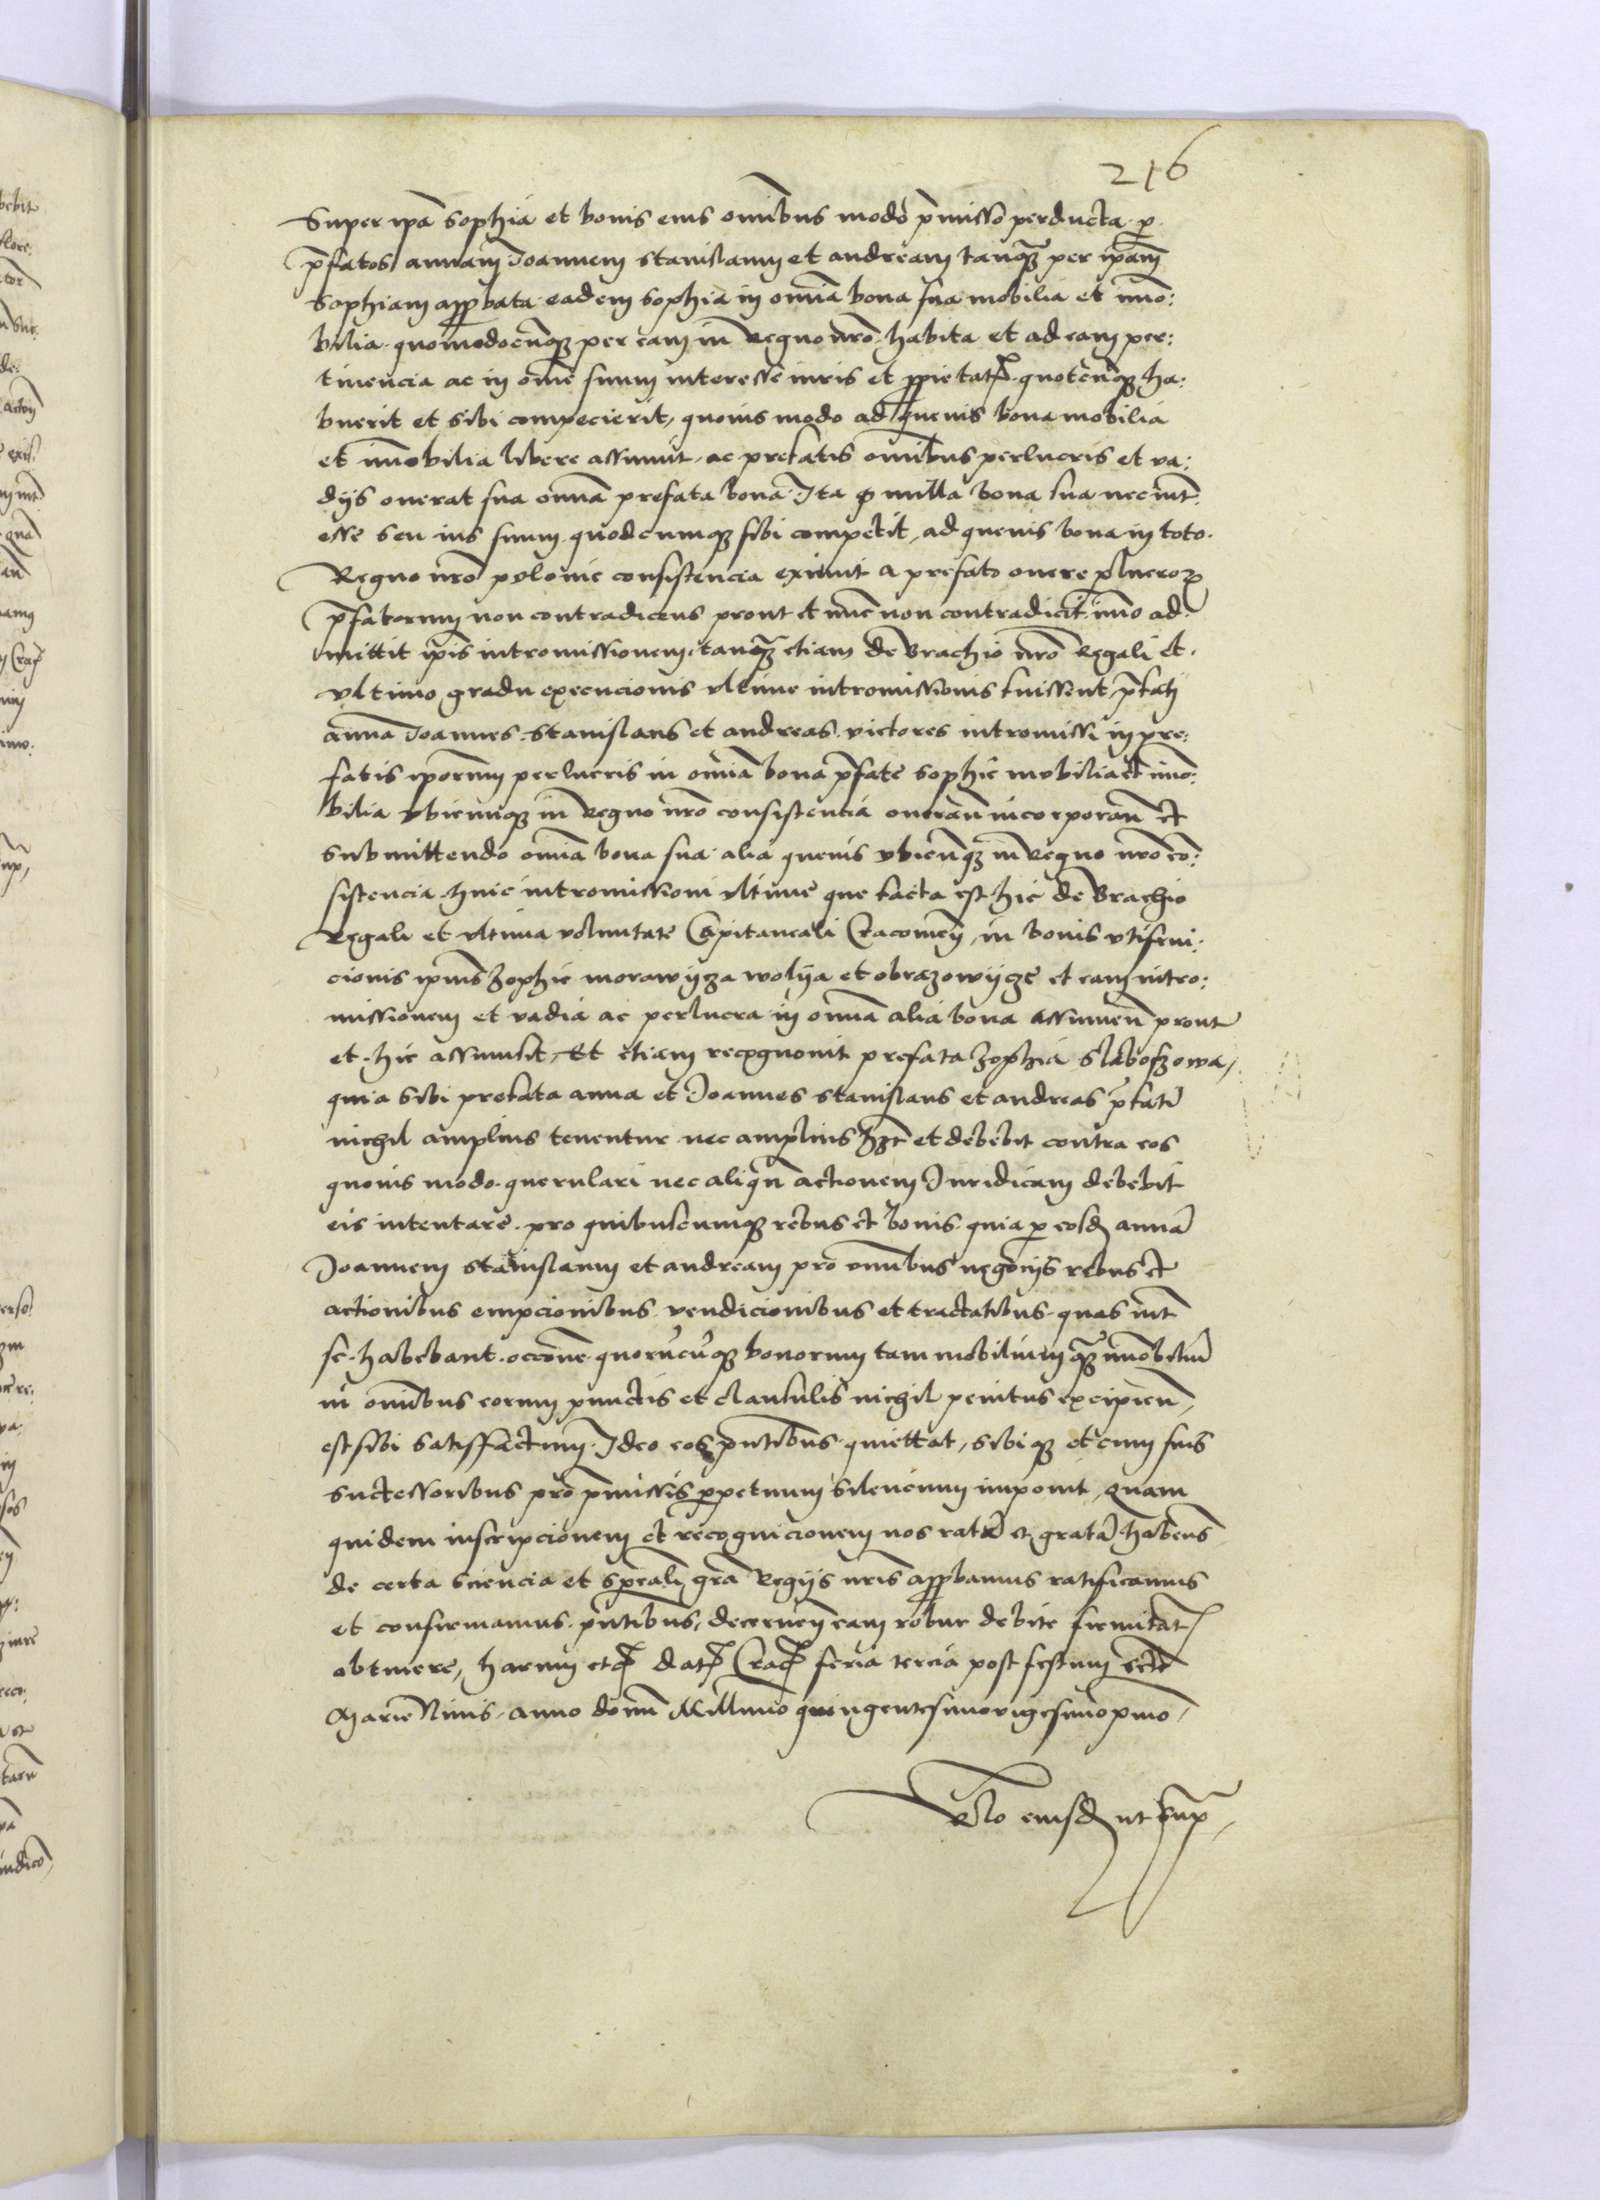 216
Super ipā Sophia et bonis eius omībus modo p̄misso perducta p̱
p̄fatos annam Joannem Stanislaum et andream tanq̄ per ip̄am
Sophiam app̱bata eadem Sophia in omīa bona sua mobilia et īmo:
bilia quomodocūq per eam in Regno nr̄o habita et ad eam per:
tinencia ac in om̄e suum interesse iuris et p̱prietat quotcūq ha:
buerit et sibi competierit, quouis modo ad queuis bona mobilia
et īmobilia libere assumit ac prefatis omībus perlucris et va:
dijs onerat sua omīa prefata bona Ita q̱ nulla bona sua nec int̄
esse seu ius suum quodcumq sibi competit, ad queuis bona in toto
Regno nr̄o polonie consistencia eximit a prefato onere p̱lucroꝝ
p̄fatorum non contradicens prout et nūc non contradicit īmo ad
mittit ip̄is intromissionem tanq̄ etiam de Brachio nr̄o Regali et
vltimo gradu execucionis vltime intromissionis fuissent p̄fati
anna Joannes Stanislaus et andreas victores intromissi in pre:
fatis ip̄orum perlucris in omīa bona p̄fate Sophie mobilia et īmo:
bilia vbicumq in Regno nr̄o consistencia oneran̄ incorporan̄ et
submittendo omīa bona sua alia queuis vbicūq in Regno nr̄o cō:
sistencia huic intromissioni vltime que facta est hic de Brachio
Regali et vltima voluntate Capitaneali Cracouien̄ in bonis vtifrui:
cionis ip̄ius Zophie morawycza wolya et obrazowycze et eam intro:
missionem et vadia ac perlucra in omīa alia bona assumen̄ prout
et hic assumsit, Et etiam recognouit prefata Zophia Slaboszowa,
quia sibi prefata anna et Joannes Stanislaus et andreas p̄fati
nichil amplius tenentur nec amplius et debebit contra eos
quouis modo querulari nec aliqū actionem Juridicam debebit
eis intentare pro quibuscumq rebus et bonis quia p̱ eosd annā
Joannem Stanislaum et andream pro omībus negocijs rebus et
actionibus empcionibus vendicionibus et tractatibus quas int̄
se habebant occōne quorūcūq bonorum tam mobilium q̄ īmobiliū
in omībus eorum punctis et clausulis nichil penitus excipien̄,
est sibi satisffactum Ideo eos p̄ntibus quiettat, sibiq et cum suis
suctessoribus pro p̄missis p̱petuum silencium imponit, quam
quidem inscripcionem et recognicionem nos ratā et gratā habens
de certa sciencia et sp̄eali gr̄a Regijs nr̄is app̱bamus ratificamus
et confirmamus p̄ntibus, decernen̄ eam robur debite firmitat
obtinere, harum etc̄ dat Crac̄ feria tercia post festum sctē
Marie Niuis anno domī Millimo quingentesimo vigesimo pmo

Rlo eiusd ut sup̱